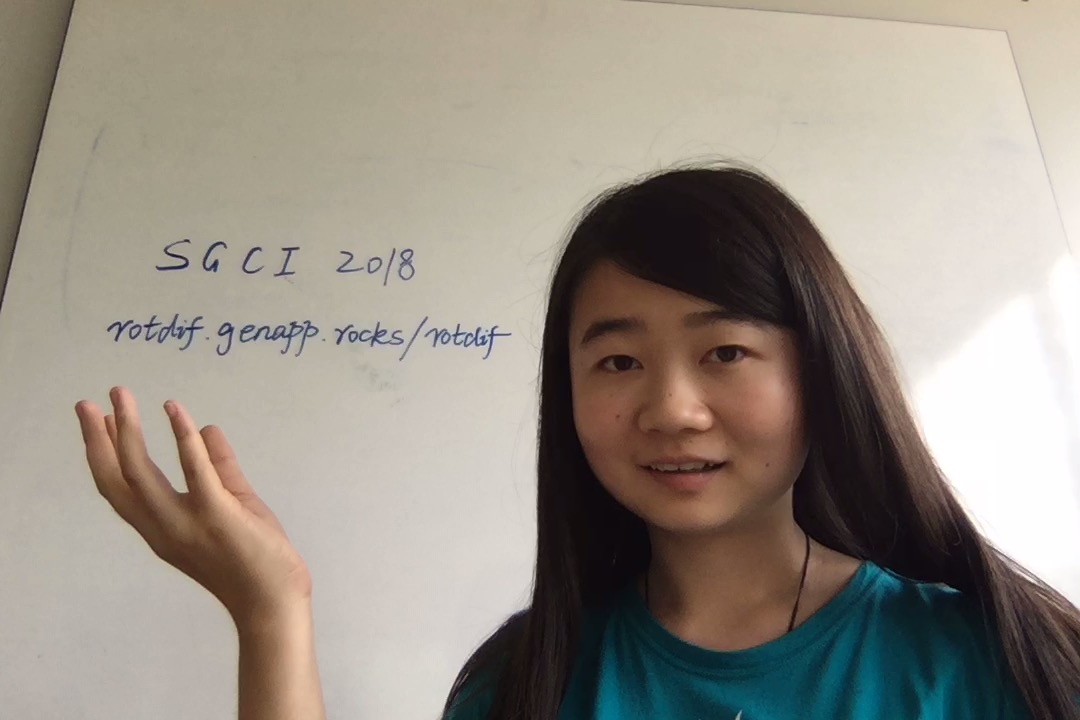 SGCI 2018
rotdif.genapp.rocks/rotdif